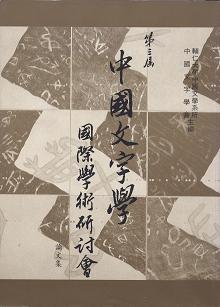 輔仁大學中國文學系所
中國文字學會
第三屆
中國文字學
國際學術研討會
論文集